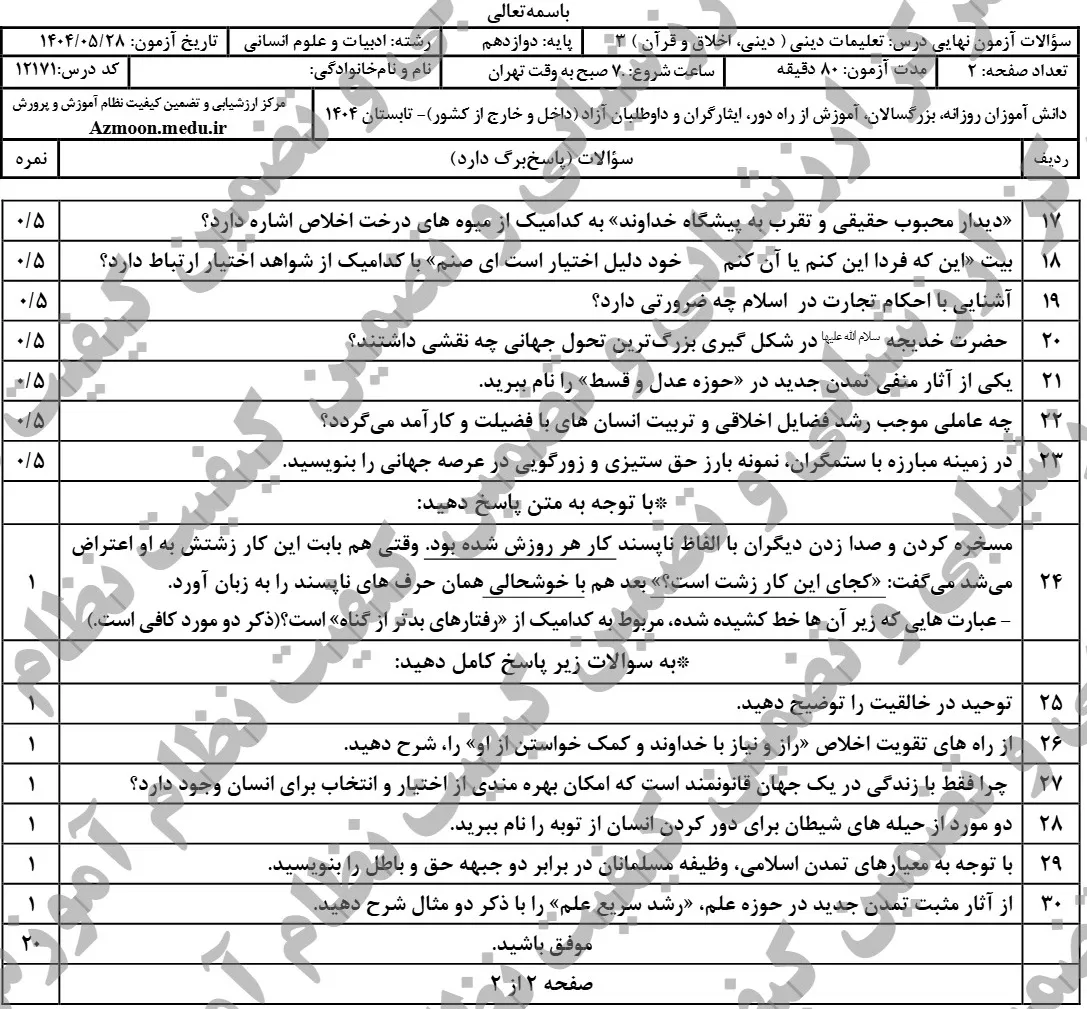 باسمه‌تعالی
سؤالات آزمون نهایی درس: تعلیمات دینی ( دینی، اخلاق و قرآن ) ۳ پایه: دوازدهم رشته: ادبیات و علوم انسانی تاریخ آزمون: ۱۴۰۴/۰۵/۲۸
تعداد صفحه: ۲ مدت آزمون: ۸۰ دقیقه ساعت شروع: ۷ صبح به وقت تهران نام و نام‌خانوادگی: کد درس: ۱۲۱۷۱
دانش آموزان روزانه، بزرگسالان، آموزش از راه دور، ایثارگران و داوطلبان آزاد (داخل و خارج از کشور)- تابستان ۱۴۰۴ مرکز ارزشیابی و تضمین کیفیت نظام آموزش و پرورش
Azmoon.medu.ir
ردیف سؤالات (پاسخ‌برگ دارد) نمره
۱۷ «دیدار محبوب حقیقی و تقرب به پیشگاه خداوند» به کدامیک از میوه های درخت اخلاص اشاره دارد؟ ۰/۵
۱۸ بیت «این که فردا این کنم یا آن کنم خود دلیل اختیار است ای صنم» با کدامیک از شواهد اختیار ارتباط دارد؟ ۰/۵
۱۹ آشنایی با احکام تجارت در اسلام چه ضرورتی دارد؟ ۰/۵
۲۰ حضرت خدیجه سلام الله علیها در شکل گیری بزرگ‌ترین تحول جهانی چه نقشی داشتند؟ ۰/۵
۲۱ یکی از آثار منفی تمدن جدید در «حوزه عدل و قسط» را نام ببرید. ۰/۵
۲۲ چه عاملی موجب رشد فضایل اخلاقی و تربیت انسان های با فضیلت و کارآمد می‌گردد؟ ۰/۵
۲۳ در زمینه مبارزه با ستمگران، نمونه بارز حق ستیزی و زورگویی در عرصه جهانی را بنویسید. ۰/۵
*با توجه به متن پاسخ دهید:
مسخره کردن و صدا زدن دیگران با الفاظ ناپسند کار هر روزش شده بود. وقتی هم بابت این کار زشتش به او اعتراض
۲۴ می‌شد می‌گفت: «کجای این کار زشت است؟» بعد هم با خوشحالی همان حرف های ناپسند را به زبان آورد. ۱
- عبارت هایی که زیر آن ها خط کشیده شده، مربوط به کدامیک از «رفتارهای بدتر از گناه» است؟(ذکر دو مورد کافی است.)
*به سوالات زیر پاسخ کامل دهید:
۲۵ توحید در خالقیت را توضیح دهید. ۱
۲۶ از راه های تقویت اخلاص «راز و نیاز با خداوند و کمک خواستن از او» را، شرح دهید. ۱
۲۷ چرا فقط با زندگی در یک جهان قانونمند است که امکان بهره مندی از اختیار و انتخاب برای انسان وجود دارد؟ ۱
۲۸ دو مورد از حیله های شیطان برای دور کردن انسان از توبه را نام ببرید. ۱
۲۹ با توجه به معیارهای تمدن اسلامی، وظیفه مسلمانان در برابر دو جبهه حق و باطل را بنویسید. ۱
۳۰ از آثار مثبت تمدن جدید در حوزه علم، «رشد سریع علم» را با ذکر دو مثال شرح دهید. ۱
موفق باشید. ۲۰
صفحه ۲ از ۲